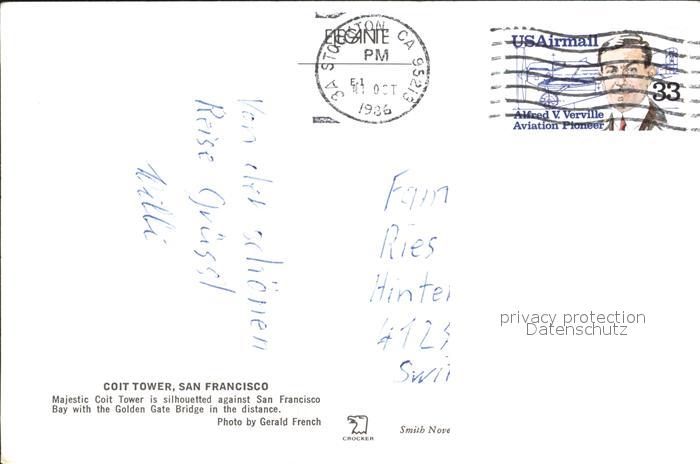 USAirmail
33
Alfred V. Verville
Aviation Pioneer
STOCKTON CA 95213
PM
OCT
1986
Von der schönen
Reise Grüsst
Willi
Fam
Ries
Hinte
412
Swi
privacy protection
Datenschutz
COIT TOWER, SAN FRANCISCO
Majestic Coit Tower is silhouetted against San Francisco
Bay with the Golden Gate Bridge in the distance.
Photo by Gerald French
CROCKER
Smith Nove